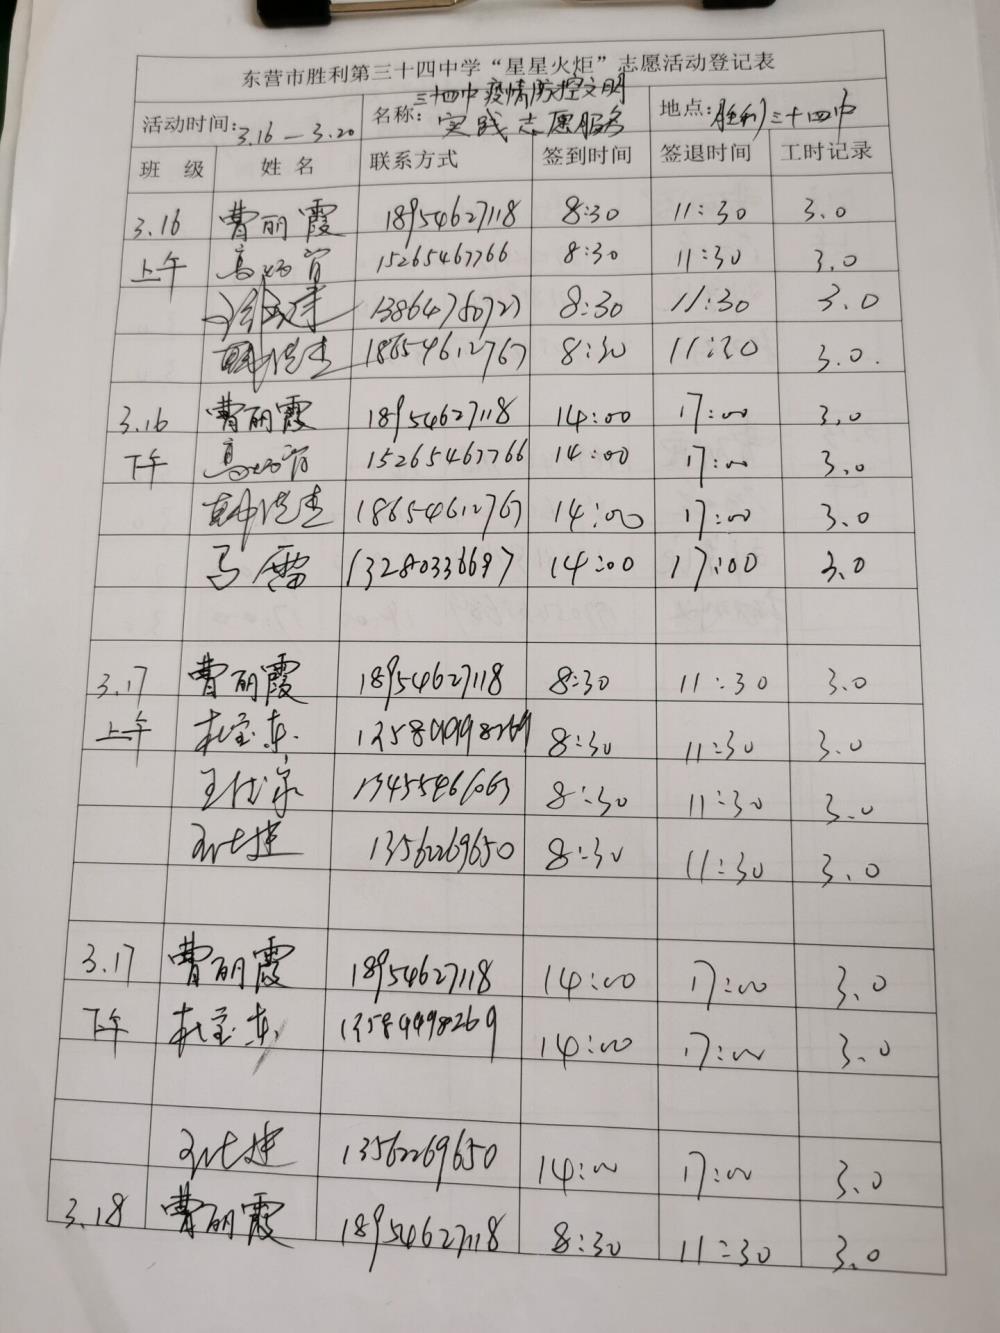 东营市胜利第三十四中学“星星火炬”志愿活动登记表
活动时间:3.16-3.20 名称:三十四中疫情防控文明实践志愿服务 地点:胜利三十四中
班 级 姓 名 联系方式 签到时间 签退时间 工时记录
3.16 曹丽霞 18954627118 8:30 11:30 3.0
上午 15265467766 8:30 11:30 3.0
13864760727 8:30 11:30 3.0
18654612767 8:30 11:30 3.0.
3.16 曹丽霞 18954627118 14:00 17:00 3.0
下午 15265467766 14:00 17:00 3.0
18654612767 14:00 17:00 3.0
马雷 13280336697 14:00 17:00 3.0
3.17 曹丽霞 18954627118 8:30 11:30 3.0
上午 杜宝东 13589998269 8:30 11:30 3.0
13455461063 8:30 11:30 3.0
13562269650 8:30 11:30 3.0
3.17 曹丽霞 18954627118 14:00 17:00 3.0
下午 杜宝东 13589998269 14:00 17:00 3.0
13562269650 14:00 17:00 3.0
3.18 曹丽霞 18954627118 8:30 11:30 3.0